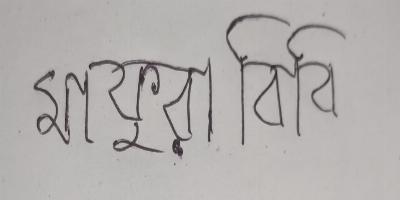 মাফুরা বিবি